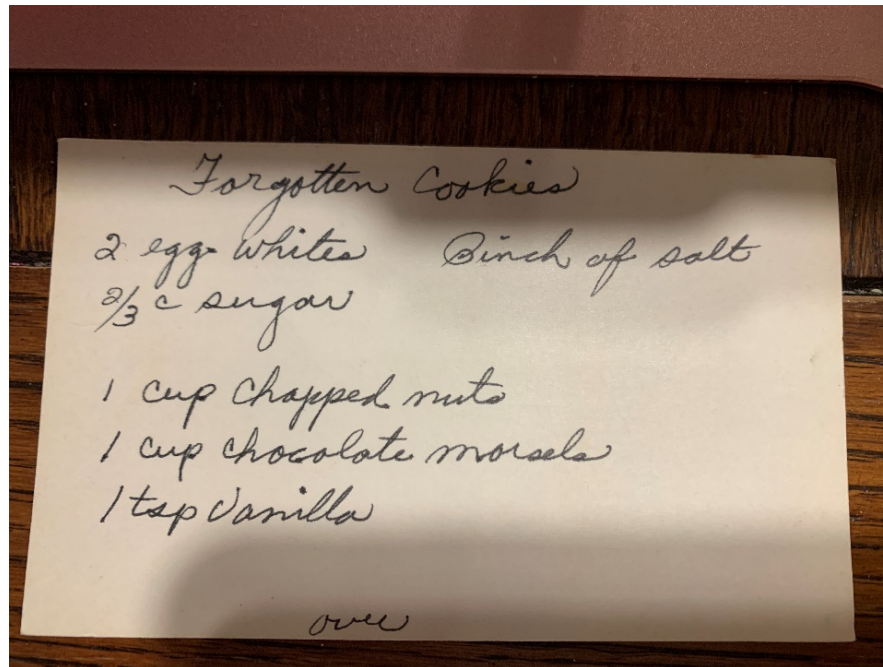 Forgotten Cookies
2 egg whites Pinch of salt
2/3 c sugar
1 cup chopped nuts
1 cup chocolate morsels
1 tsp Vanilla
over